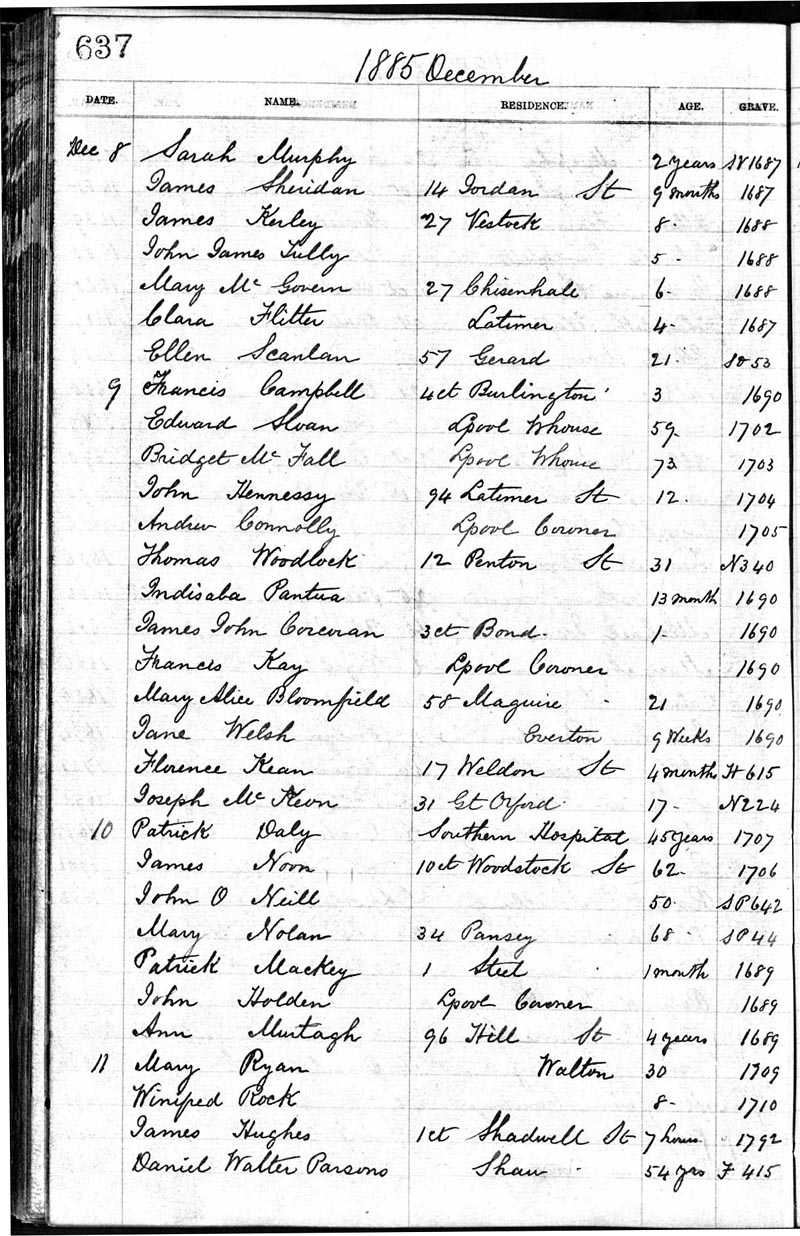 637
1885 December
DATE. NAME. RESIDENCE. AGE. GRAVE.
Dec 8 Sarah Murphy 2 years SV 1687
James Sheridan 14 Jordan St 9 months 1687
James Kerley 27 Vestock 8 1688
John James Tully 5 1688
Mary Mc Govern 27 Chisenhale 6 1688
Clara Flitter Latimer 4 1687
Ellen Scanlan 57 Gerard 21 53
9 Francis Campbell 4 ct Burlington 3 1690
Edward Sloan Lpool Whouse 59 1702
Bridget Mc Fall Lpool Whouse 73 1703
John Hennessy 94 Latimer St 12 1704
Andrew Connolly Lpool Coroner 1705
Thomas Woodlock 12 Penton St 31 N340
Indisaba Pantua 13 month 1690
James John Corcoran 3 ct Bond 1 1690
Francis Kay Lpool Coroner 1690
Mary Alice Bloomfield 58 Maguire 21 1690
Jane Welsh Everton 9 Weeks 1690
Florence Kean 17 Weldon St 4 months H 615
Joseph Mc Keon 31 Gt Oxford 17 N224
10 Patrick Daly Southern Hospital 45 years 1707
James Noon 10 ct Woodstock St 62 1706
John O Neill 50 SP 642
Mary Nolan 34 Pansey 68 SP 44
Patrick Mackey 1 Steel 1 month 1689
John Holden Lpool Coroner 1689
Ann Murtagh 96 Hill St 4 years 1689
11 Mary Ryan Walton 30 1709
Winifred Rock 8 1710
James Hughes 1 ct Shadwell St 7 hours 1792
Daniel Walter Parsons Shaw 54 yrs F 415